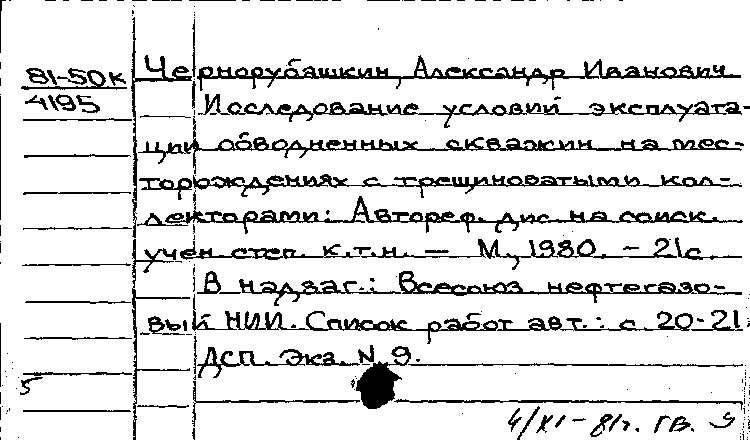 81-50к
4195
Чернорубашкин, Александр Иванович
Исследование условий эксплуата-
ции обводненных скважин на мес-
торождениях с трещиноватыми кол-
лекторами: Автореф. дис. на соиск.
учен степ. к.т.н. — М., 1980. - 21с.
В надзаг.: Всесоюз нефтегазо-
вый НИИ. Список работ авт.: с. 20-21
ДСП. Экз. N 9.
5
4/XI-81г. ГВ.